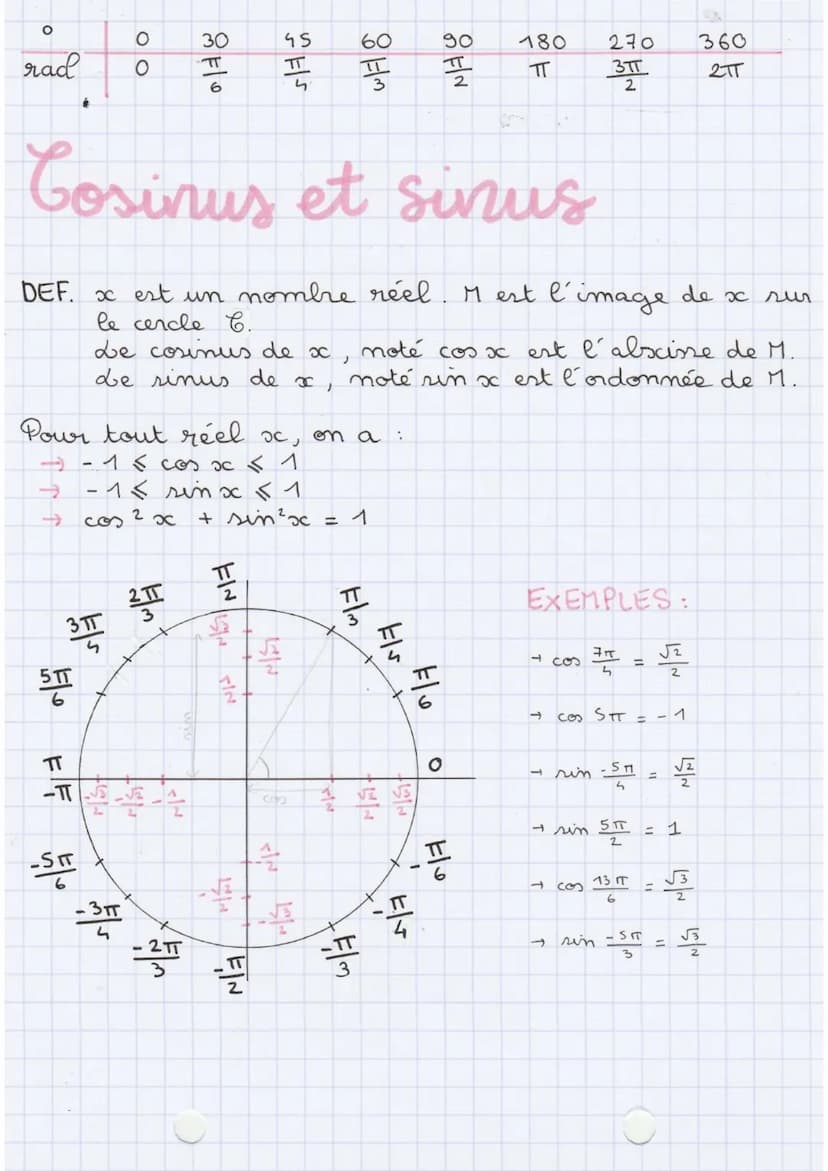 ° 0 30 45 60 90 180 270 360
rad 0 π/6 π/4 π/3 π/2 π 3π/2 2π
Cosinus et sinus
DEF. x est un nombre réel. M est l'image de x sur
le cercle C.
Le cosinus de x, noté cos x est l'abscisse de M.
Le sinus de x, noté sin x est l'ordonnée de M.
Pour tout réel x, on a :
→ -1 ⩽ cos x ⩽ 1
→ -1 ⩽ sin x ⩽ 1
→ cos² x + sin² x = 1
π/2
2π/3 π/3
3π/4 π/4
5π/6 π/6
√3/2
√2/2
1/2
sin
π 0
-π
-√3/2 -√2/2 -1/2 cos 1/2 √2/2 √3/2
-1/2
-√2/2
-√3/2
-5π/6 -π/6
-3π/4 -π/4
-2π/3 -π/3
-π/2
EXEMPLES :
→ cos 7π/4 = √2/2
→ cos 5π = -1
→ sin -5π/4 = √2/2
→ sin 5π/2 = 1
→ cos 13π/6 = √3/2
→ sin -5π/3 = √3/2